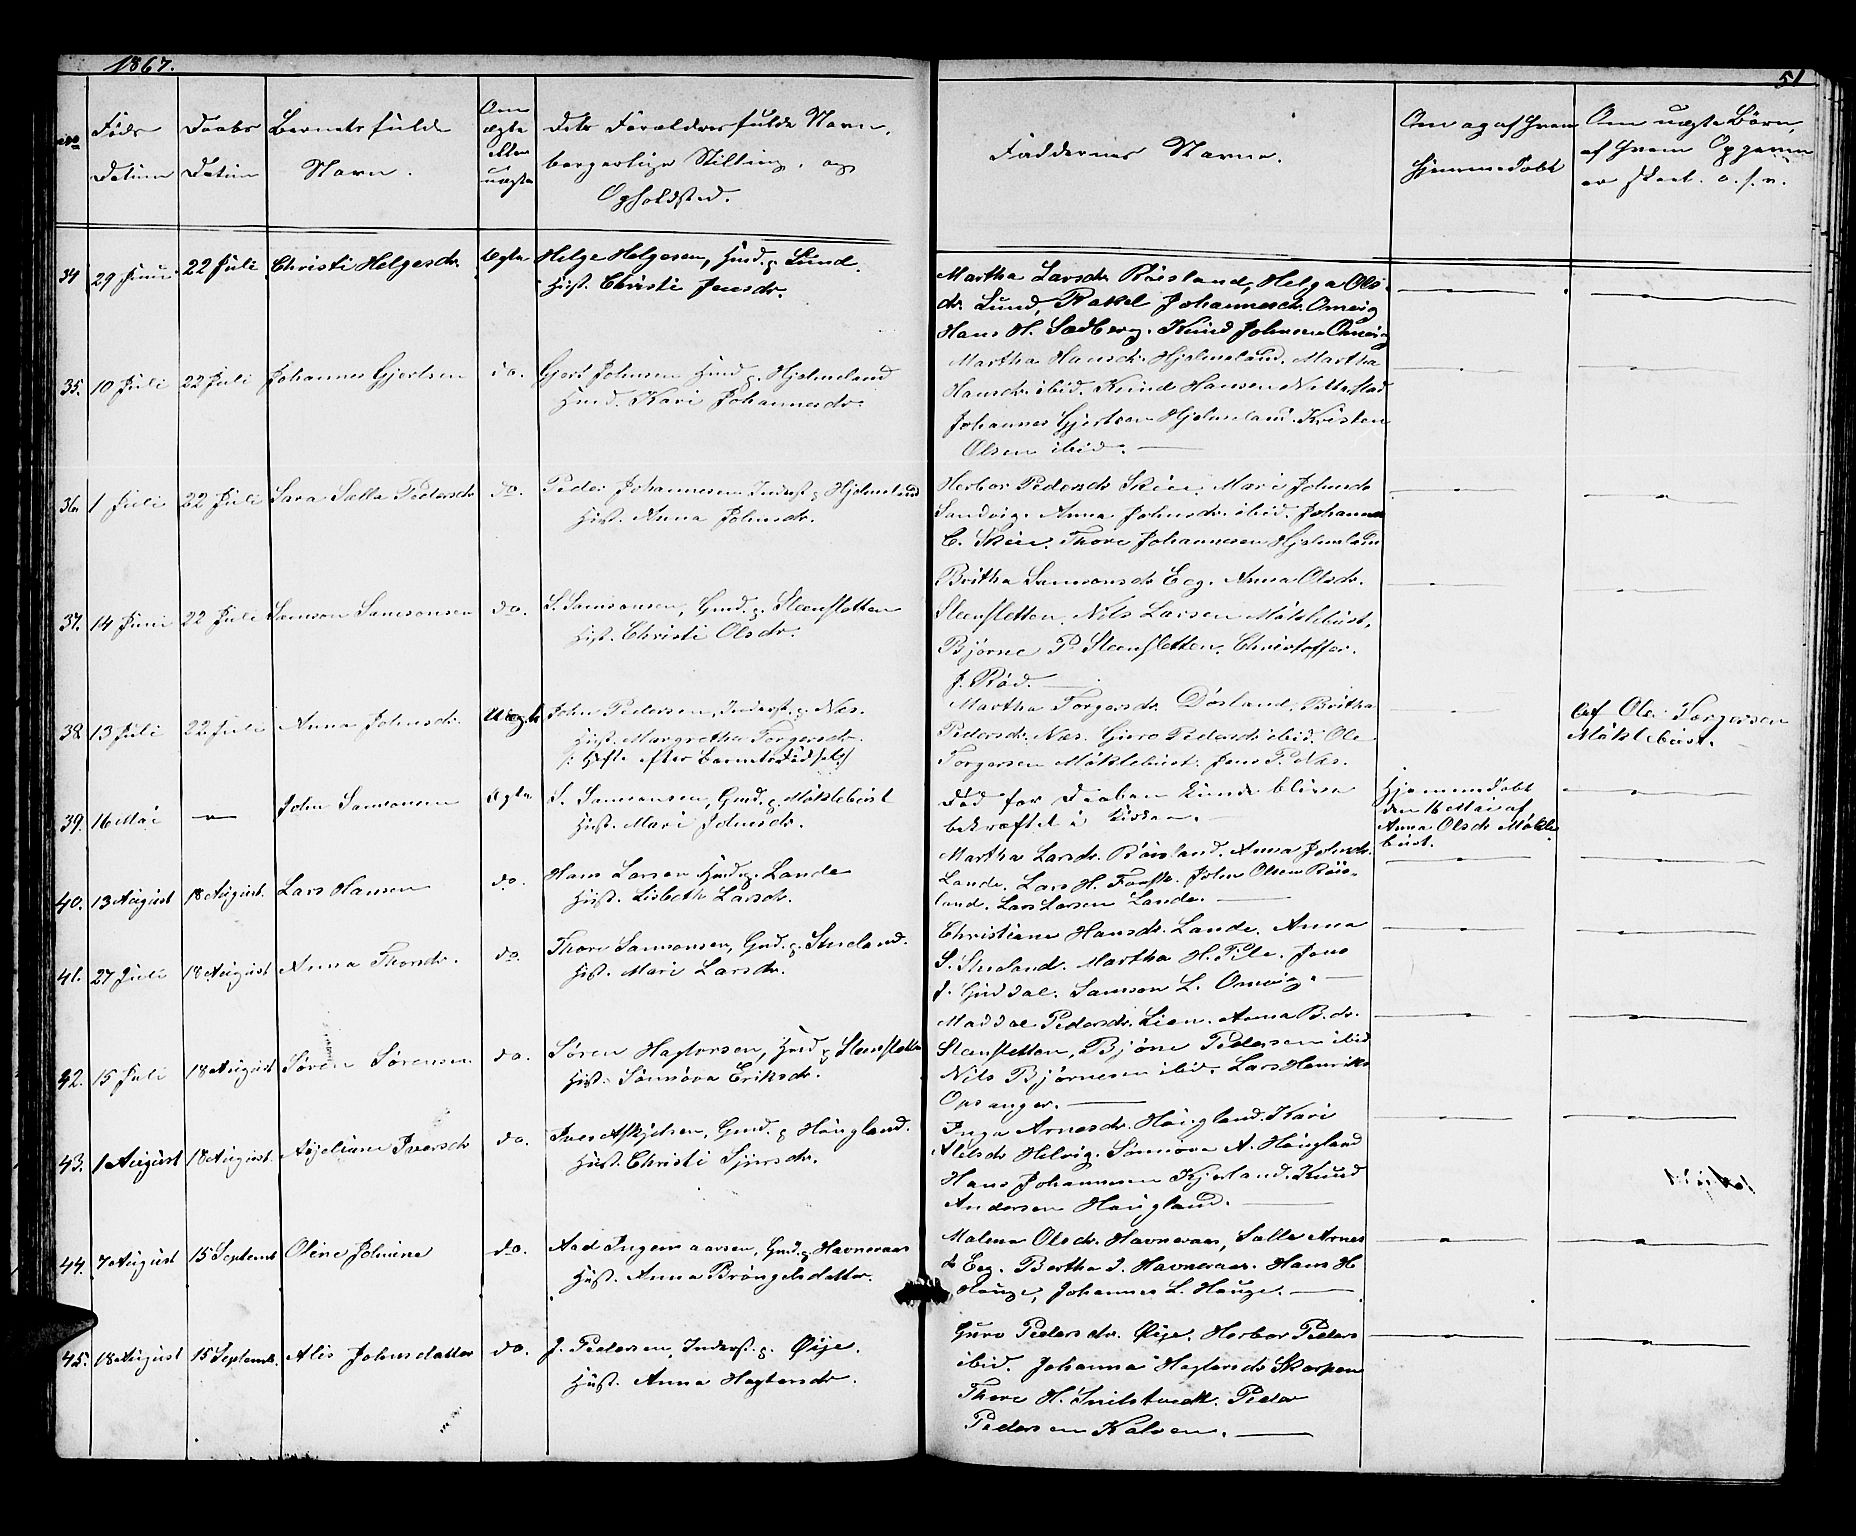 1867.
51
No
Føds
Datum
Daabs
Datum
Barnets fulde
Navn.
Om
ægte
eller
uægte
Dets Forældres fulde Navn,
borgerlige Stilling, og
Opholdsted.
Faddernes Navne.
Om og af hvem
hjemmedøbt
Om uægte Børn,
af hvem Opgaven
er skeet. o. s. v.
34 29 Juni 22 Juli Christi Helgesdr. Ægte Helge Helgesen, Hmd. p. Lund.
Hust. Christi Jensdr.
Martha Larsdr. Røisland, Helga Ols-
dr. Lund, Rakel Johannesdr. Omvig
Hans H. Sædberg. Knud Johnsen Omvig
35. 10 Juli 22 Juli Johannes Gjertsen do. Gjert Johnsen Hmd. p. Hjelmeland
Hust. Kari Johannesdr.
Martha Hansdr. Hjelmeland. Martha
Hansdr. ibid. Knud Hansen Nettestad
Johannes Gjertsen Hjelmeland. Kristen
Olsen ibid.
36. 1 Juli 22 Juli Sara Sælla Pedersdr do. Peder Johannesen Inderst p. Hjelmeland
Hust. Anna Johnsdr.
Herbor Pedersdr. Skeie. Mari Johnsdr
Sandvig. Anna Johnsdr. ibid. Johannes
C. Skeie. Thore Johannesen Hjelmeland
37. 14 Juni 22 Juli Samson Samsonsen do. S. Samsonsen, Gmd. p. Steensletten
Hust. Christi Olsdr.
Britha Samsonsdr. Eeg. Anna Olsdr.
Steensletten. Nils Larsen Møklebust,
Bjørne P. Steensletten. Christoffer.
J. Rød.
38. 13 Juli 22 Juli Anna Johnsdr. Uægte John Pedersen, Inderst. p. Næs.
Hust. Margretha Torgersdr.
/: Gifte efter Barnets Fødsel :/
Martha Torgersdr. Døsland, Britha
Pedersdr. Næs. Guro Pedersdr. ibid. Ole
Torgersen Møklebust. Jens P. Næs.
Af Ole Torgersen
Møklebust.
39. 16 Mai — John Samsonsen Ægte S. Samsonsen, Gmd. p. Møklebust
Hust. Mari Johnsdr.
Død før Daaben kunde blive
bekræftet i Kirken.
Hjemmedøbt
den 16 Mai af
Anna Olsdr Møkle-
bust.
40. 13 August 18 August. Lars Hansen do. Hans Larsen Hmd. p. Lande
Hust. Lisbeth Larsdr.
Martha Larsdr. Røisland. Anna Johnsdr.
Lande. Lars H. John Olsen Røis-
land. Lars Larsen Lande.
41. 27 Juli 18 August Anna Thorsdr. do. Thore Samsonsen, Gmd. p. Stueland.
Hust. Mari Larsdr.
Christiane Hansdr. Lande. Anna
S. Stueland. Martha H. Pile. Jens
J. Guddal. Samson L. Omvig.
42. 15 Juli 18 August Søren Sørensen do. Søren Hagtorsen, Hmd. p. Steensletten
Hust. Sønnøva Eriksdr.
Maddal Pedersdr. Lien. Anna B.dr.
Steensletten, Bjørne Pedersen ibid
Nils Bjørnesen ibid. Lars Henriks
Opsanger.
43. 1 August 18 August. Anjeliane Iversdr do. Iver Askjelsen, Gmd. p. Haugland.
Hust. Christi Sjursdr.
Inga Arnesdr. Haugland. Kari
Nilsdr Helvig. Sønnøva A. Haugland
Hans Johannesen Kjerland. Knud
Andersen Haugland.
44. 7 August 15 Septemb Oline Johnine do. Aad Ingemaarsen, Gmd. p. Havneraas
Hust. Anna Brøngelsdatter.
Malena Olsdr. Havneraas, Salle Arnes
dr Eeg. Bertha I. Havneraas. Hans H
Hauge, Johannes L. Hauge.
45. 18 August 15 Septemb. Alis Johnsdatter do. J. Pedersen, Inderst. p. Øije.
Hust. Anna Hagtorsdr.
Guro Pedersdr. Øije. Herbor Peders
ibid. Johanna Hagtorsdr Skorpen
Thore H. Snilstvedt. Peder
Pedersen Kalven.